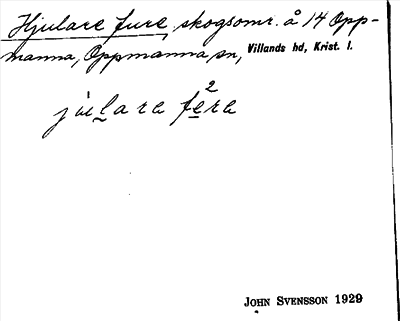 Hjulare fure, skogsomr. å 14 Opp-
manna, Oppmanna sn, Villands hd, Krist. l.
2
júlara fera
JOHN SVENSSON 1929